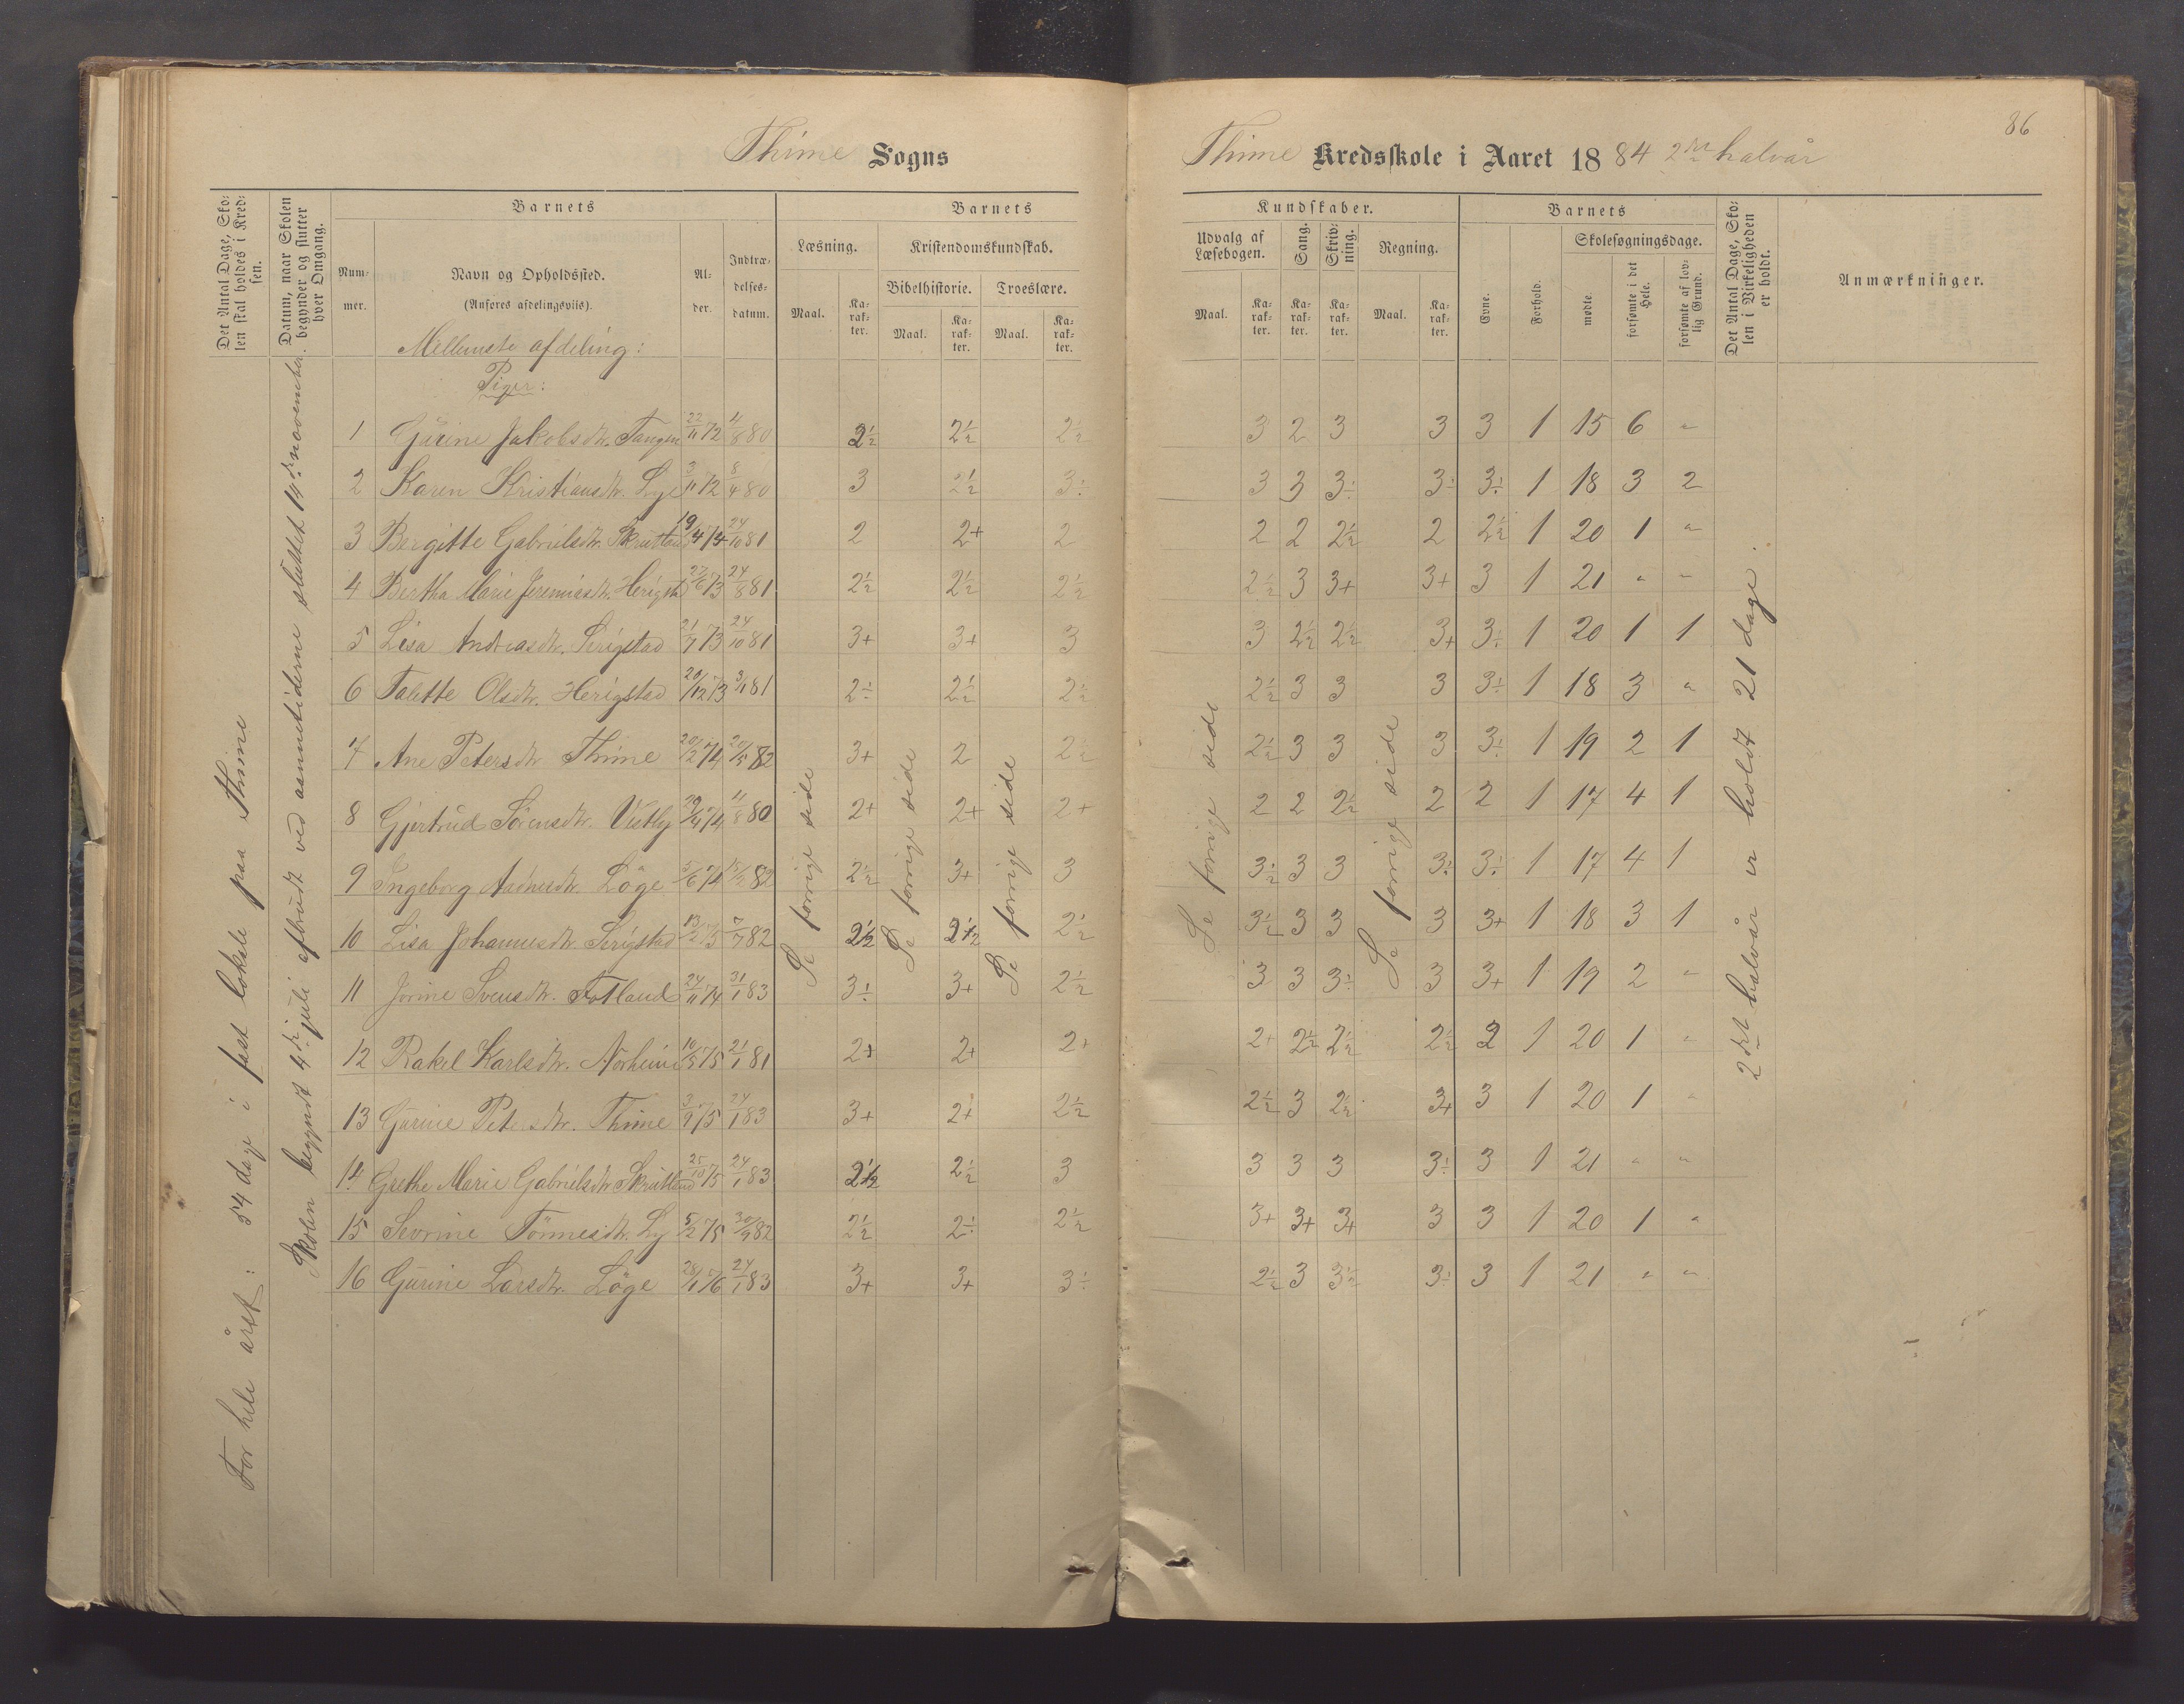 86
Thime Sogns
Thime Kredsskole i Aaret 1884 2det halvår
Det Antal Dage, Sko-
len skal holdes i Kred-
sen.
Datum, naar Skolen
begynder og slutter
hver Omgang.
Barnets
Num-
mer.
Navn og Opholdssted.
(Anføres afdelingsviis).
Al-
der.
Indtræ-
delses-
datum.
Barnets
Læsning.
Maal.
Ka-
rak-
ter.
Kristendomskundskab.
Bibelhistorie.
Maal.
Ka-
rak-
ter.
Troeslære.
Maal.
Ka-
rak-
ter.
Kundskaber.
Udvalg af
Læsebogen.
Maal.
Ka-
rak-
ter.
Sang.
Ka-
rak-
ter.
Skriv-
ning.
Ka-
rak-
ter.
Regning.
Maal.
Ka-
rak-
ter.
Barnets
Evne.
Forhold.
Skolesøgningsdage.
mødte.
forsømte i det
Hele.
forsømte af lov-
lig Grund.
Det Antal Dage, Sko-
len i Virkeligheden
er holdt.
Anmærkninger.
For hele året: 54 dage i fast lokale paa Thime
Skolen begyndt 4de juli afbrudt ved aannetiderne sluttet 14de november.
Mellemste afdeling:
Piger:
1 Gurine Jakobsdtr. Tangen 22/11 72 11/8 80 2½ 2½ 2½ 3 2 3 3 3 1 15 6 "
2 Karen Kristiansdtr. Lye 3/11 72 8/4 80 3 2½ 3÷ 3 3 3÷ 3÷ 3÷ 1 18 3 2
3 Bergitte Gabrielsdtr. Skrutland 19/4 74 24/10 81 2 2+ 2 2 2 2½ 2 2½ 1 20 1 "
4 Bertha Marie Jeremiasdtr. Herigstd 27/6 73 24/8 81 2½ 2½ 2½ 2½ 3 3+ 3+ 3 1 21 " "
5 Lisa Andreasdtr. Serigstad 21/7 73 24/10 81 3+ 3+ 3 3 2½ 2½ 3+ 3÷ 1 20 1 1
6 Talette Olsdtr. Herigstad 20/12 73 3/1 81 2÷ 2½ 2½ 2½ 3 3 3 3÷ 1 18 3 "
7 Ane Petersdtr. Thime 20/2 74 20/5 82 3+ 2 2½ 2½ 3 3 3 3÷ 1 19 2 1
8 Gjertrud Sörensdtr. Vestly 29/4 74 11/8 80 2+ 2+ 2+ 2 2 2½ 2 2 1 17 4 1
9 Ingeborg Aadnesdtr. Löge 5/6 74 82 2½ 3+ 3 3½ 3 3 3÷ 3÷ 1 17 4 1
10 Lisa Johannesdtr. Serigstad 13/2 75 7/7 82 2½ 2½ 2½ 3½ 3 3 3 3+ 1 18 3 1
11 Jorine Svensdtr. Fotland 24/11 74 31/1 83 3÷ 3+ 2½ 3 3 3÷ 3 3+ 1 19 2 "
12 Rakel Karlsdtr. Norheim 10/5 75 21/1 81 2+ 2+ 2+ 2+ 2½ 2½ 2½ 2 1 20 1 "
13 Gurine Petersdtr. Thime 3/9 75 24/1 83 3+ 2+ 2½ 2½ 3 2½ 3+ 3 1 20 1 "
14 Grethe Marie Gabrielsdtr. Skrutland 25/10 75 24/1 83 2½ 2½ 3 3 3 3 3÷ 3 1 21 " "
15 Sevrine Tönnesdtr. Ly 5/2 75 30/9 82 2½ 2÷ 2½ 3+ 3+ 3+ 3 3 1 20 1 "
16 Gurine Larsdtr. Löge 28/1 76 24/1 83 3+ 3+ 3÷ 2½ 3 3½ 3÷ 3 1 21 " "
Se forrige side
Se forrige side
Se forrige side
Se forrige side
Se forrige side
2det halvår er holdt 21 dage.